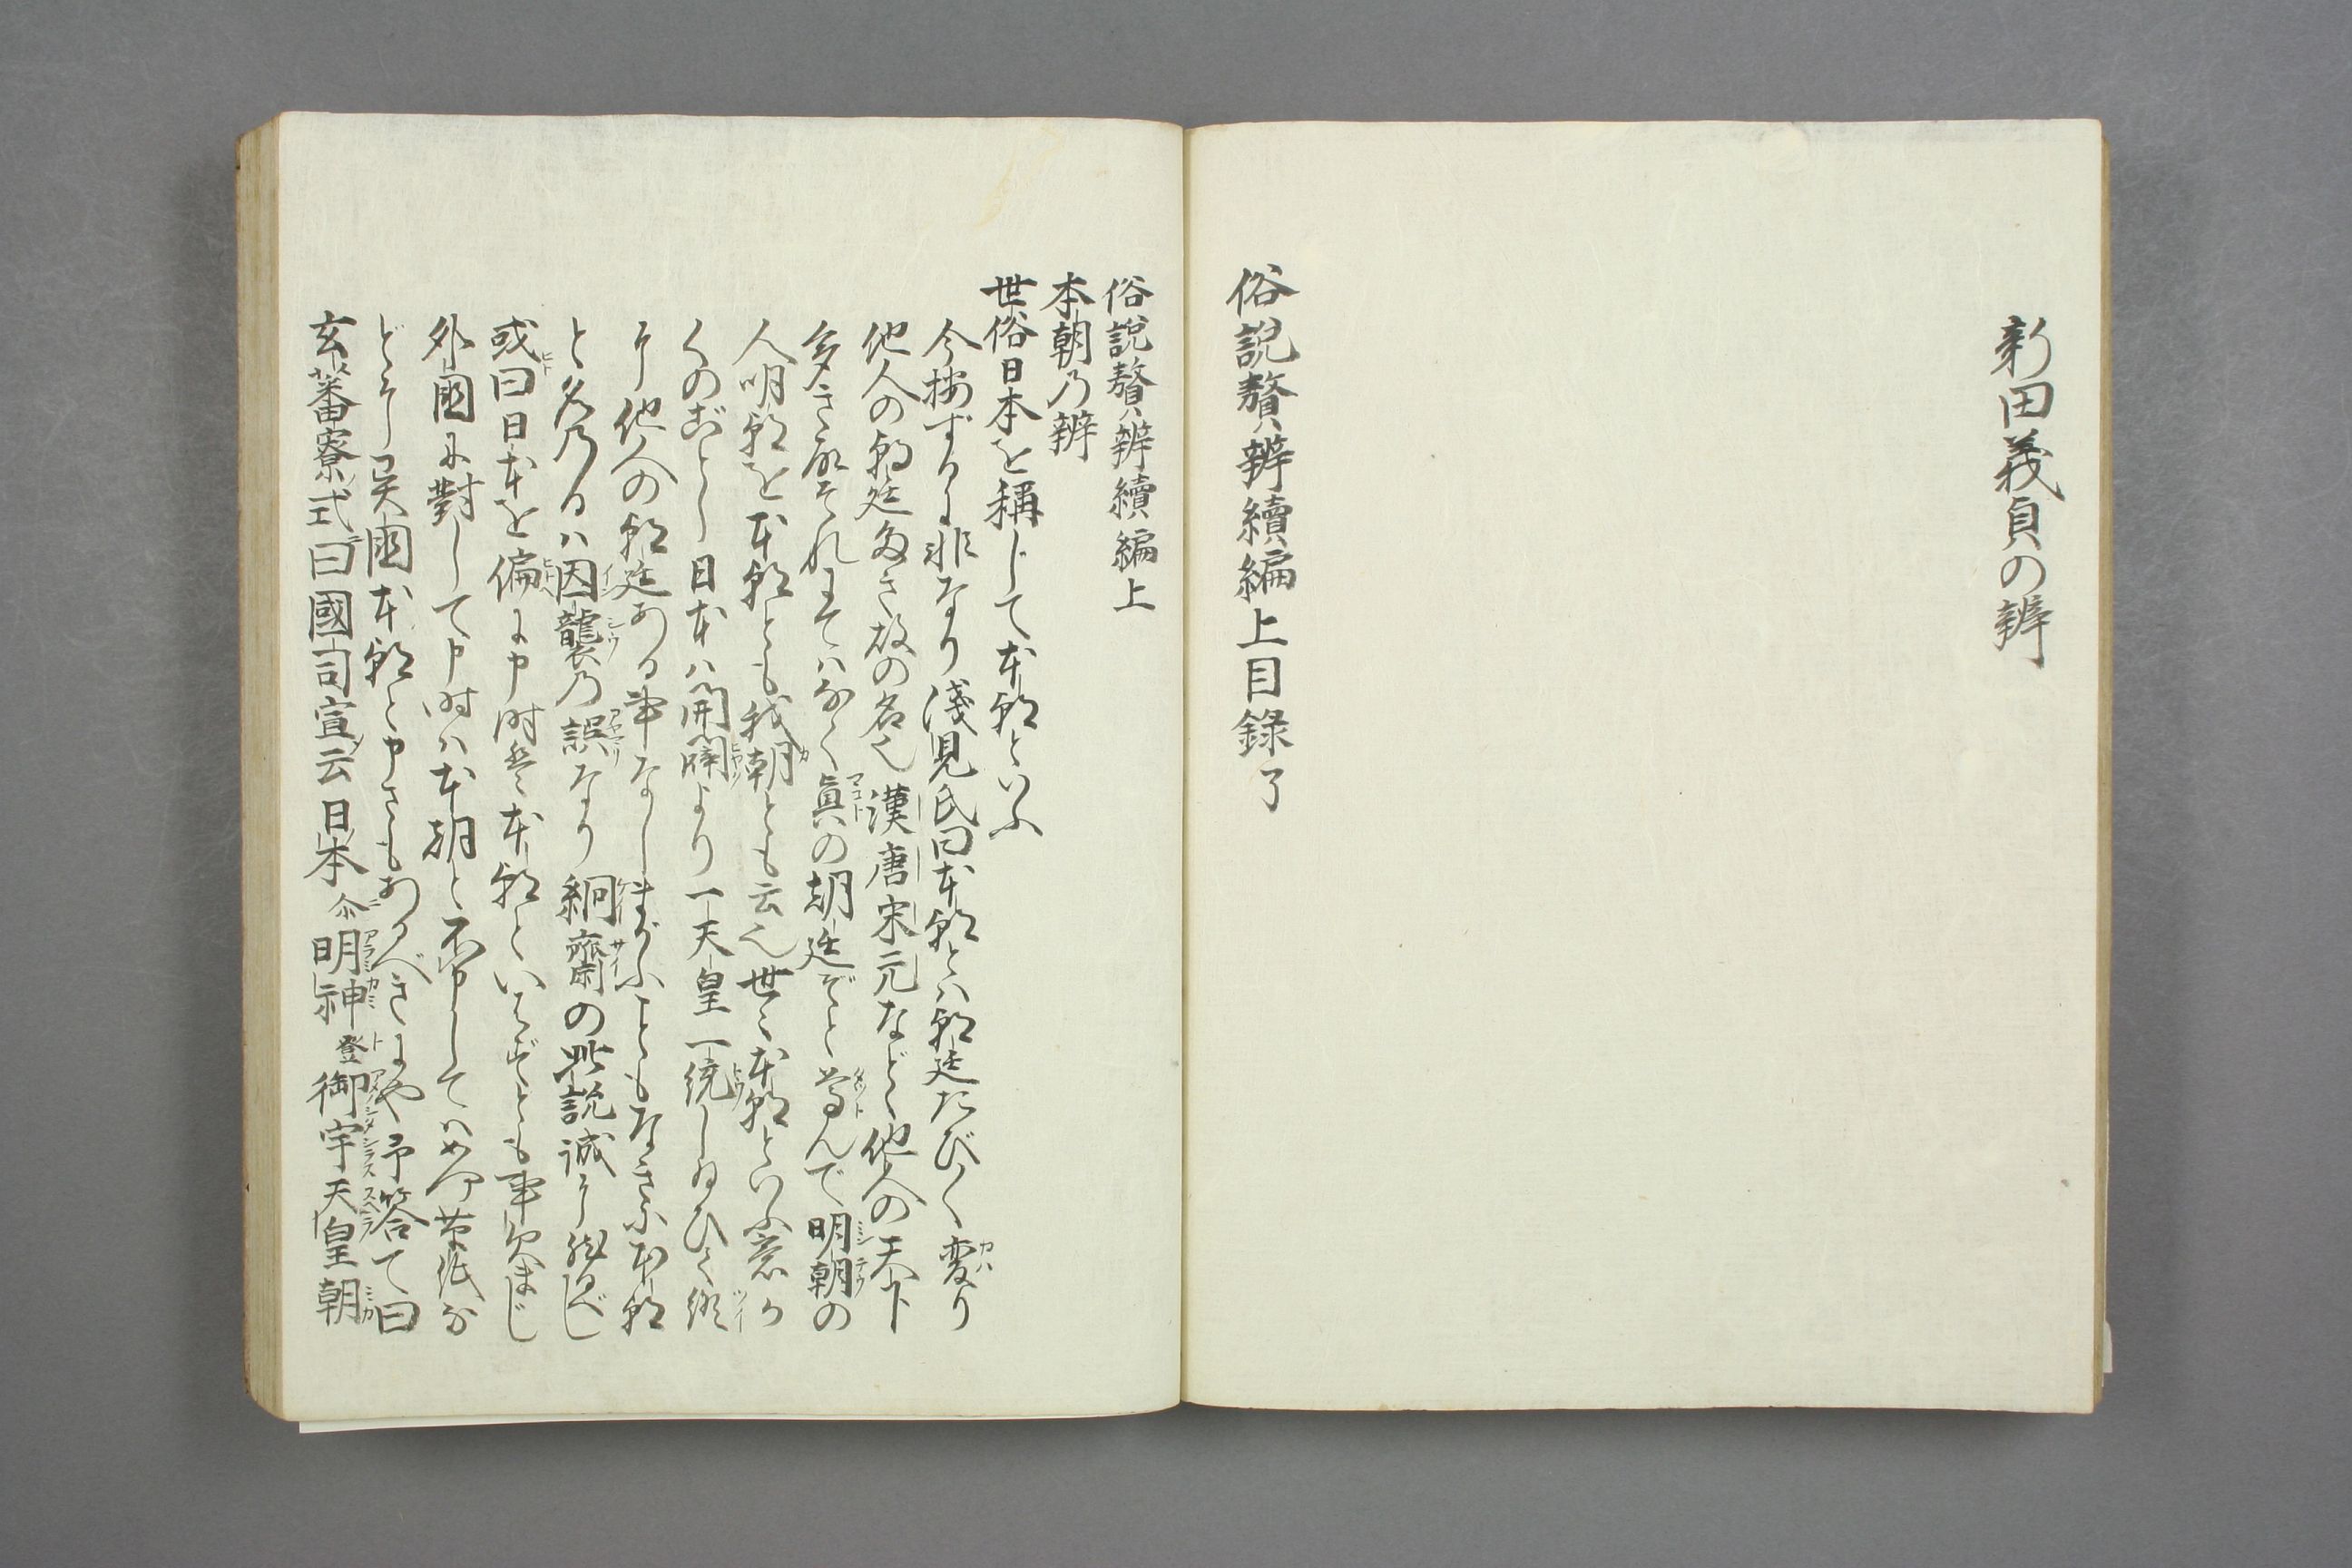 新田義貞の辨
俗説贅辨續編上目録了
俗説贅辨續編上
本朝乃辨
世俗日本を稱じて本朝といふ
今按ずるに非なり淺見氏曰本朝とハ朝廷たび〳〵変り
他人の朝廷多き故の名也漢唐宋元などゝ他人の天下
多き故それにてハなく眞の朝廷ぞと尊んで明朝の
人明朝を本朝とも我朝とも云也世々本朝といふ意か
くのごとし日本ハ開闢よりり一天皇一統しゐひて終
に他人の朝廷ある事なしまがふこともなきに本朝
と名乃るハ因襲乃誤なり絅齋の此説誠に然るべし
或曰日本を偏に申時は本朝といはずとも事欠まじ
外國に對して申時ハ本朝と不申してハ
どそし異國本朝と申さもあるべきにや予答て曰
玄蕃寮式曰國司宣云日本尓明神登御宇天皇朝